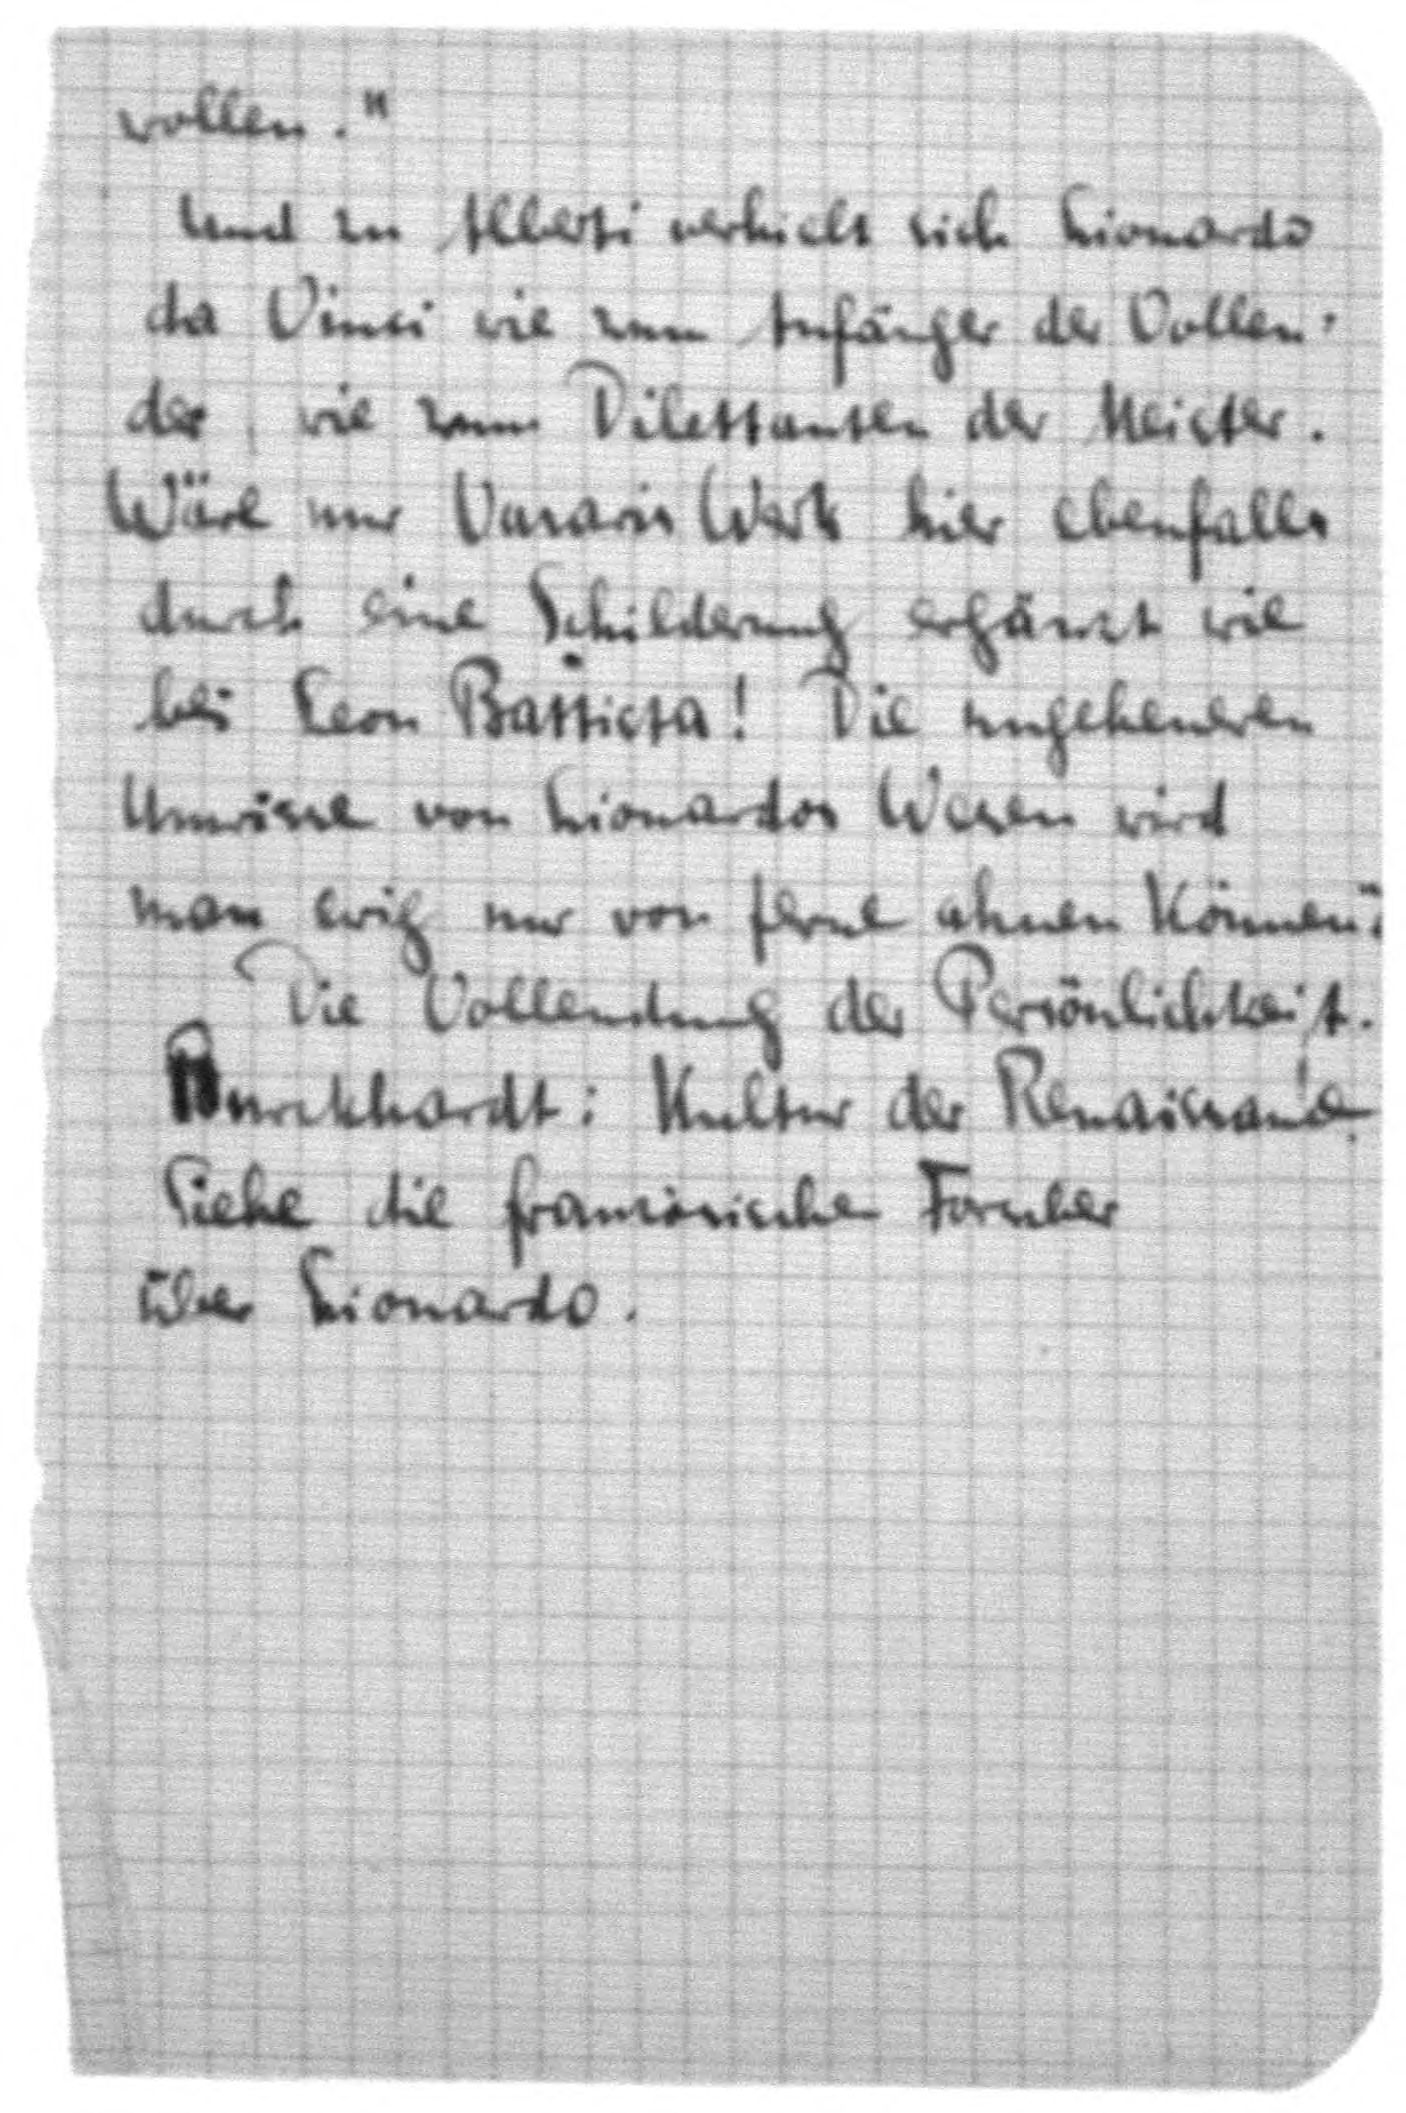 wollen."
Und zu Alberti verhielt sich Lionardo
da Vinci wie zum Anfänger der Vollen-
der, wie zum Dilettanten der Meister.
Wäre nur Vasaris Werk hier ebenfalls
durch eine Schilderung ergänzt wie
bei Leon Battista! Die ungeheueren
Umrisse von Lionardos Wesen wird
man ewig nur von ferne ahnen können".
Die Vollendung der Persönlichkeit.
Burckhardt: Kultur der Renaissance
Siehe die französischen Forscher
über Lionardo.